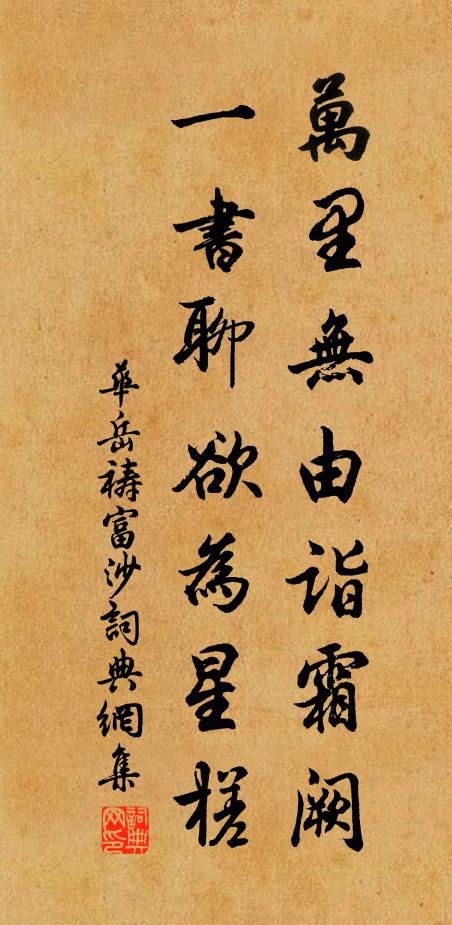 萬里無由詣霜闕
一書聊欲為星槎
華岳禱富沙詞典網集
詞典网印